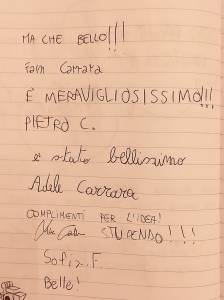 MA CHE BELLO!!!
Carrara
È MERAVIGLIOSISSIMO!!!
PIETRO C.
è stato bellissimo
Adele Carrara
COMPLIMENTI PER L'IDEA!
STUPENDO!!!
Sofia F.
Belle!